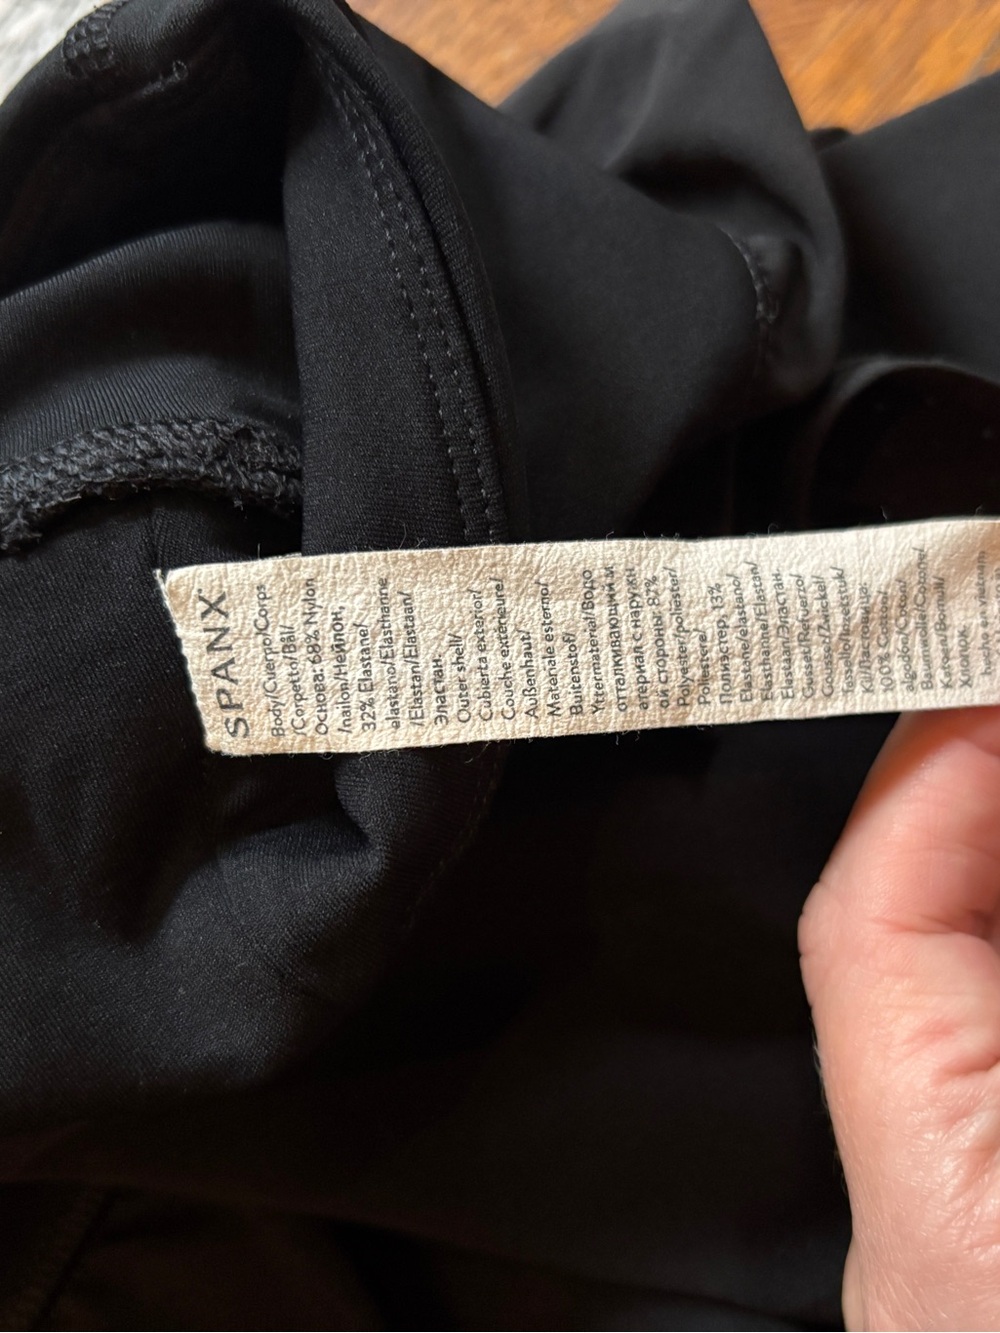 SPANX
Body/Cuerpo/Corps
/Corpetto/Bål/
Основа: 68% Nylon
/nailon/Нейлон,
32% Elastane/
elastano/Elasthanne
/Elastan/Elastaan/
Эластан.
Outer shell/
Cubierta exterior/
Couche extérieure/
Außenhaut/
Materiale esterno/
Buitenstof/
Yttermaterial/Водо
отталкивающий м
атериал с наружн
ой стороны: 87%
Polyester/poliéster/
Poliestere/
Полиэстер, 13%
Elastane/elastano/
Elasthanne/Elastan/
Elastaan/Эластан.
Gusset/Refuerzo/
Gousset/Zwickel/
Tassello/Inzetstuk/
Kil/Ластовица:
100% Cotton/
algodón/Coton/
Baumwolle/Cotone/
Katoen/Bomull/
Хлопок.